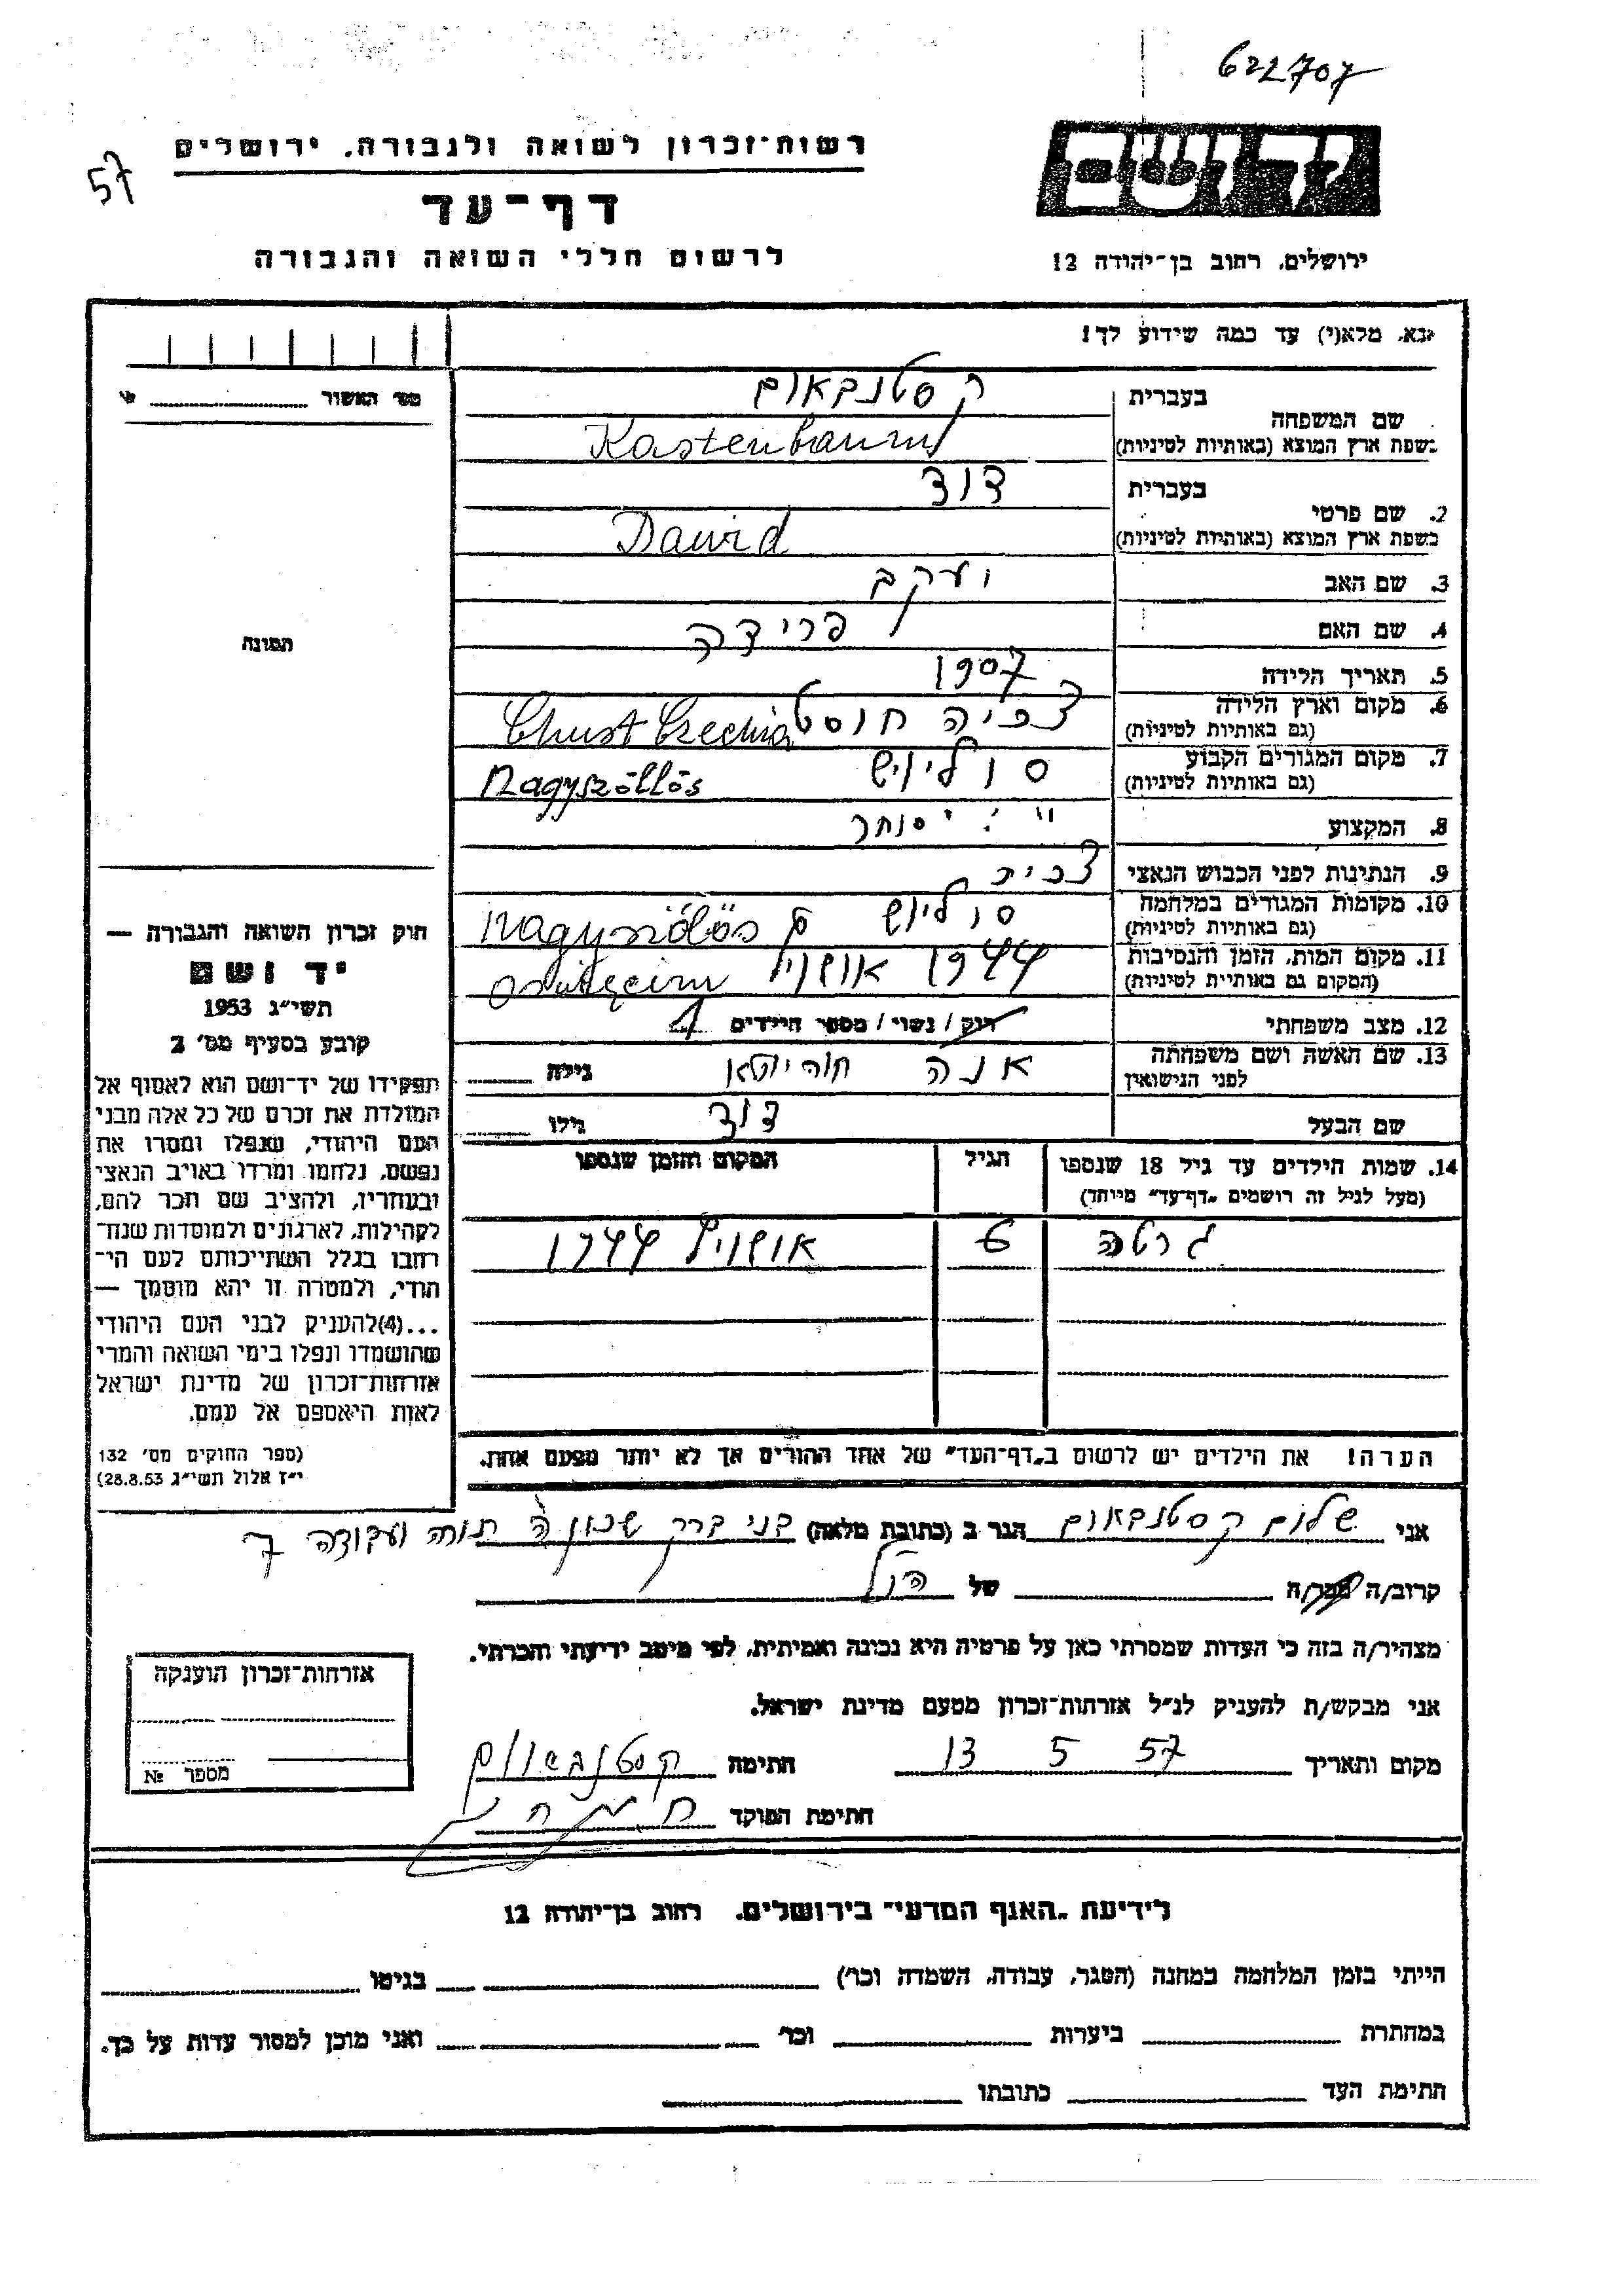 622707
57
רשות-זכרון לשואה ולגבורה, ירושלים
דף-עד
לרשום חללי השואה והגבורה
יד ושם
ירושלים, רחוב בן-יהודה 12
נא, מלא(י) עד כמה שידוע לך!
מס' האשור
בעברית קסטנבאום
שם המשפחה
בשפת ארץ המוצא (באותיות לטיניות) Kastenbaum
בעברית דוד
2. שם פרטי
בשפת ארץ המוצא (באותיות לטיניות) Dawid
3. שם האב יעקב
4. שם האם פרידה
5. תאריך הלידה 1907
6. מקום וארץ הלידה צכיה חוסט Chust Czechia
(גם באותיות לטיניות)
7. מקום המגורים הקבוע סוליוש Nagyszöllös
(גם באותיות לטיניות)
8. המקצוע סוחר
9. הנתינות לפני הכבוש הנאצי צכית
10. מקומות המגורים במלחמה סוליוש Nagyszölös
(גם באותיות לטיניות)
11. מקום המות, הזמן והנסיבות 1944
(המקום גם באותיות לטיניות)
12. מצב משפחתי רוק/נשוי/מספר הילדים 1
13. שם האשה ושם משפחתה אנה גילה
לפני הנישואין
שם הבעל דוד גילו
14. שמות הילדים עד גיל 18 שנספו הגיל המקום והזמן שנספו
(מעל לגיל זה רושמים "דף-עד" מיוחד)
גרטה 6 1944
הערה! את הילדים יש לרשום ב"דף-העד" של אחד ההורים אך לא יותר מפעם אחת.
התמונה
חוק זכרון השואה והגבורה —
יד ושם
תשי"ג 1953
קובע בסעיף מס' 2
תפקידו של יד-ושם הוא לאסוף אל
המולדת את זכרם של כל אלה מבני
העם היהודי, שנפלו ומסרו את
נפשם, נלחמו ומרדו באויב הנאצי
ובעוזריו, ולהציב שם וזכר להם,
לקהילות, לארגונים ולמוסדות שנח-
רבו בגלל השתייכותם לעם הי-
הודי, ולמטרה זו יהא מוסמך —
...(4)להעניק לבני העם היהודי
שהושמדו ונפלו בימי השואה והמרי
אזרחות-זכרון של מדינת ישראל
לאות היאספם אל עמם.
(ספר החוקים מס' 132
י"ז אלול תשי"ג 28.8.53)
אני שלום קסטנבאום הגר ב (כתובת מלאה) בני ברק שכונה תורה ועבודה 7
קרוב/ה מכר/ה של הנ"ל
מצהיר/ה בזה כי העדות שמסרתי כאן על פרטיה היא נכונה ואמיתית, לפי מיטב ידיעתי והכרתי.
אני מבקש/ת להעניק לנ"ל אזרחות-זכרון מטעם מדינת ישראל.
מקום ותאריך 13 5 57 חתימה קסטנבאום
חתימת הפוקד
אזרחות-זכרון הוענקה
מספר №
לידיעת "האגף המדעי" בירושלים, רחוב בן-יהודה 12
הייתי בזמן המלחמה במחנה (הסגר, עבודה, השמדה וכו') בגיטו
במחתרת ביערות וכו' ואני מוכן למסור עדות על כך.
חתימת העד כתובתו